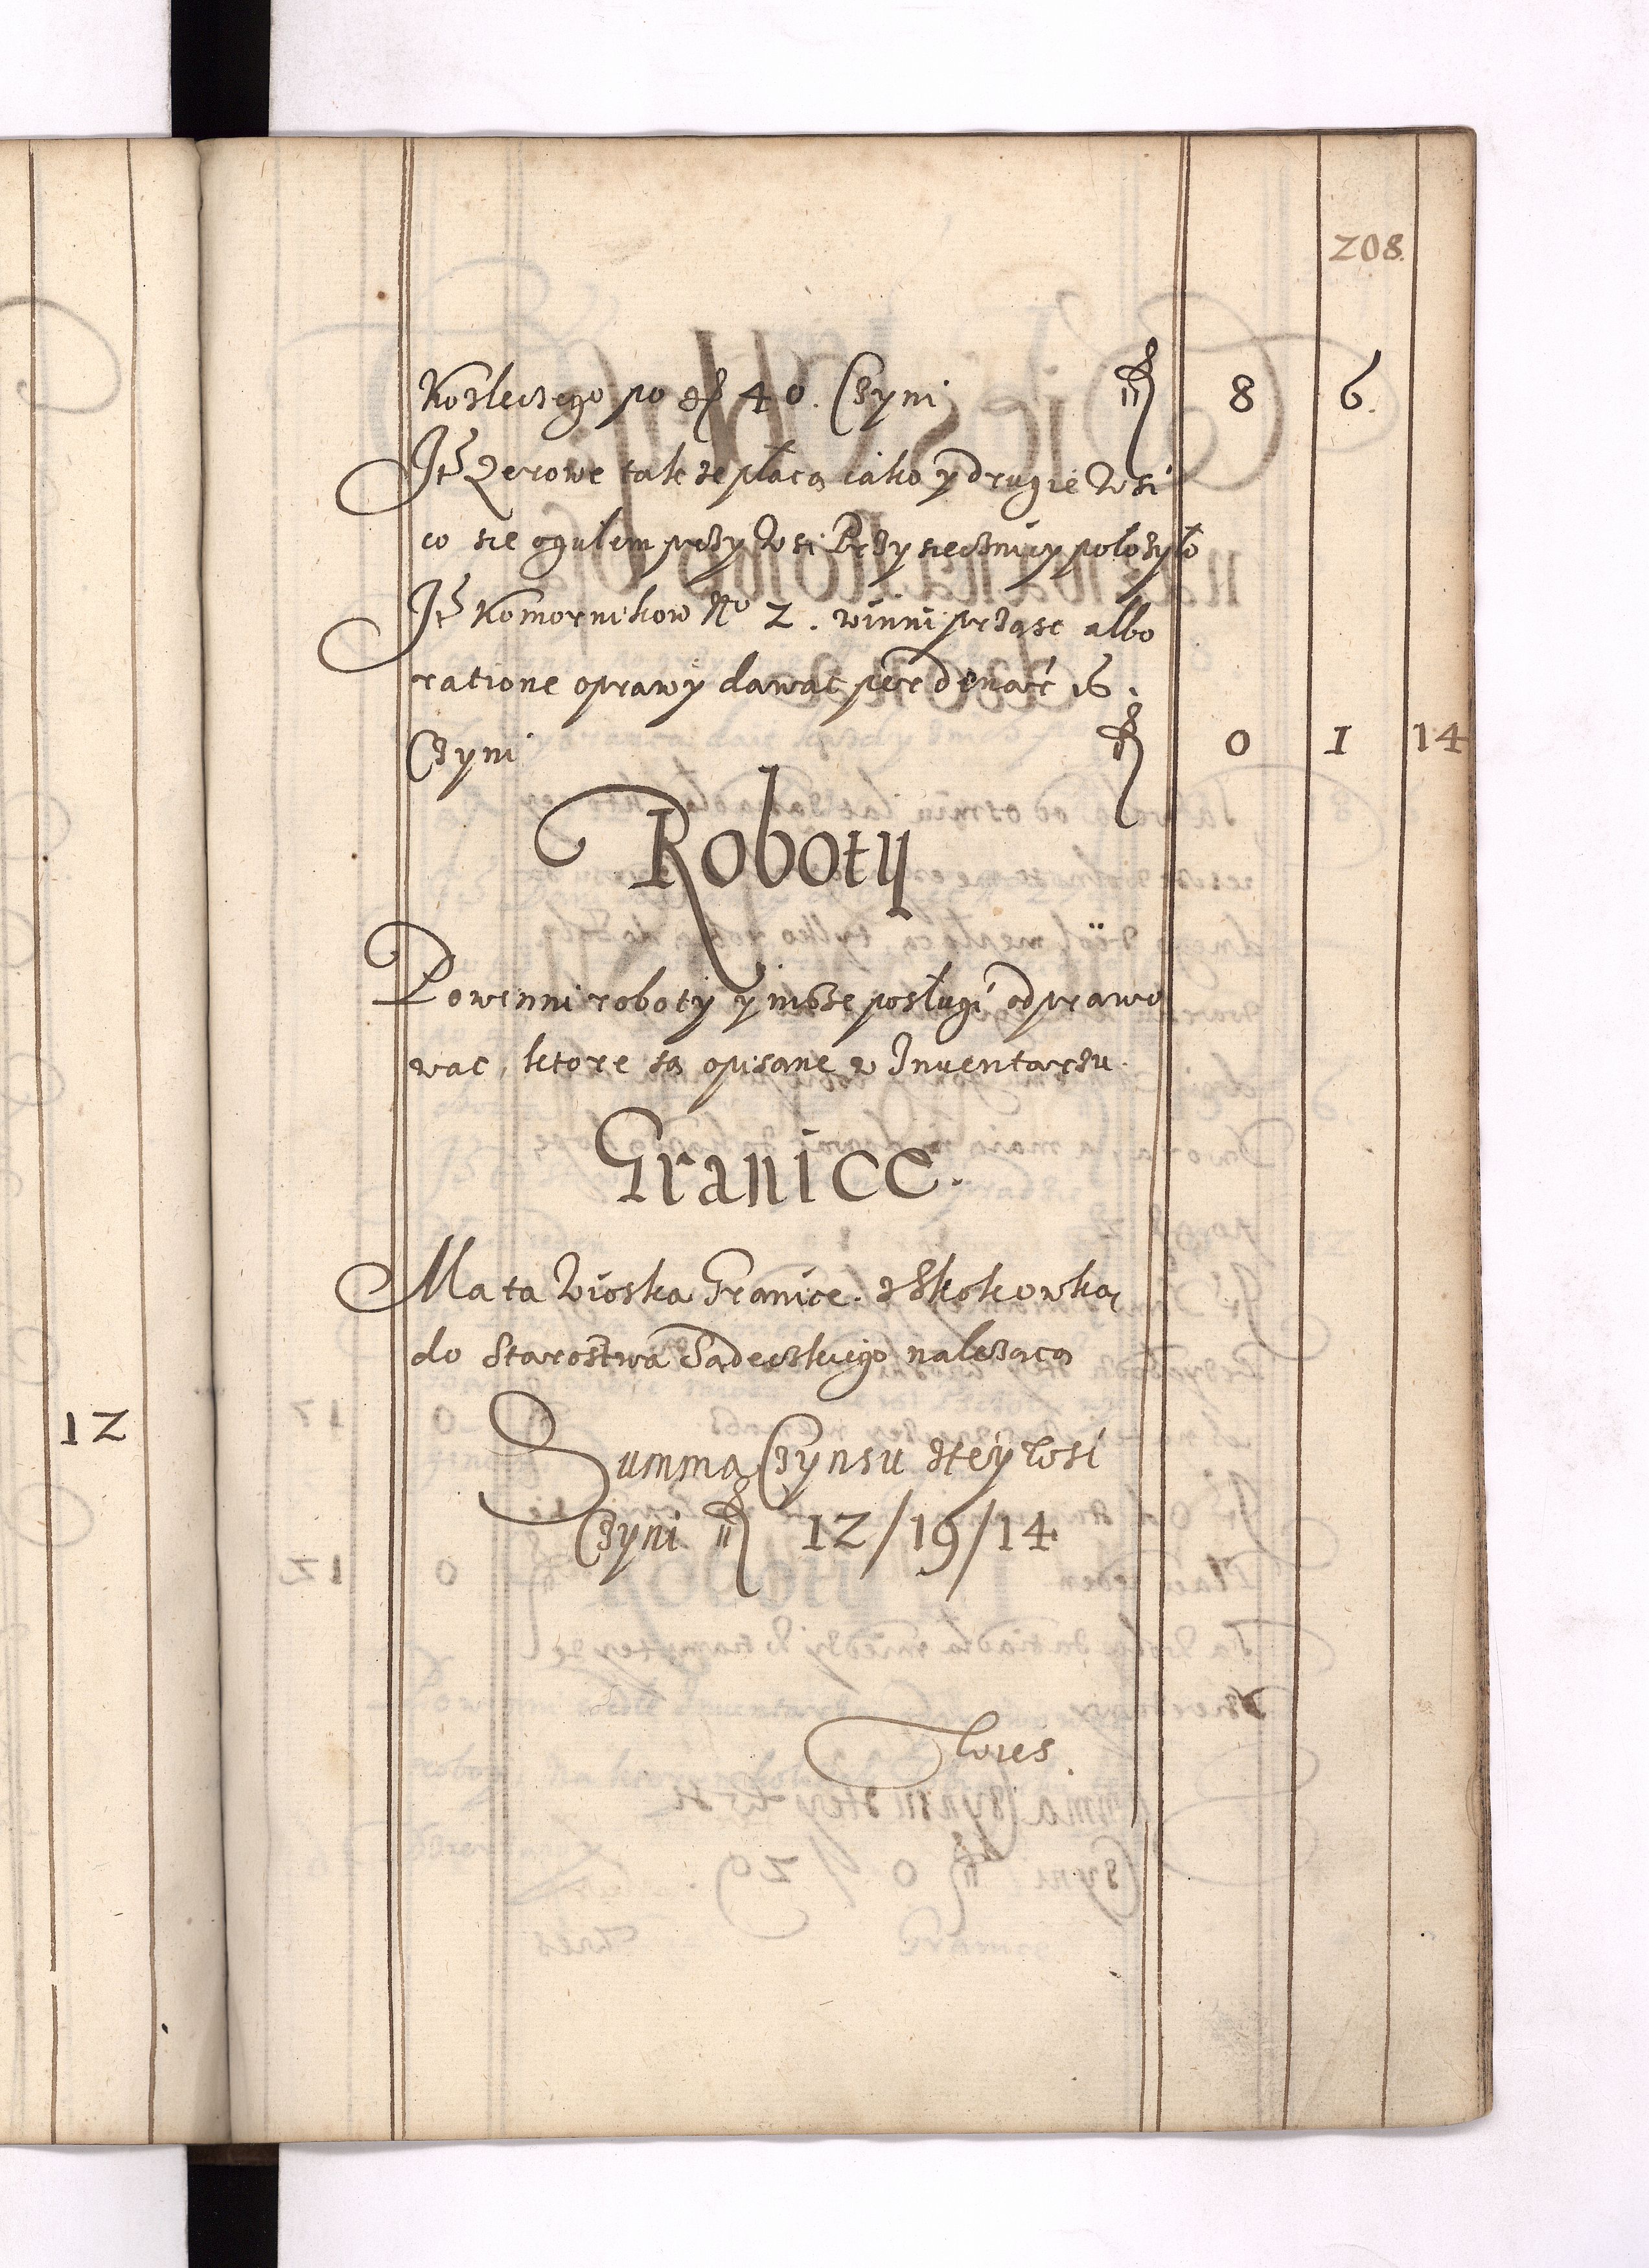 208.
Kozleczego po gr 40. Czyni fl 8 6.
It Zerowe takze płacą iako y drugie wsi
co sie ogulem przy wsi Przysiecznicy położyło
It Komornikow No 2. winni prząsc albo
ratione oprawy dawac per denar 16.
Czyni fl 0 1 14
Roboty
Powinni roboty y insze posługi odprawo
wac, ktore są opisane w Inuentarzu.
Granice.
Ma ta Wioska Granice. z Skokowką
do Starostwa Sadeczkiego nalezącą
Summa Czynsu stey wsi
Czyni fl 12/19/14
Wies.
12